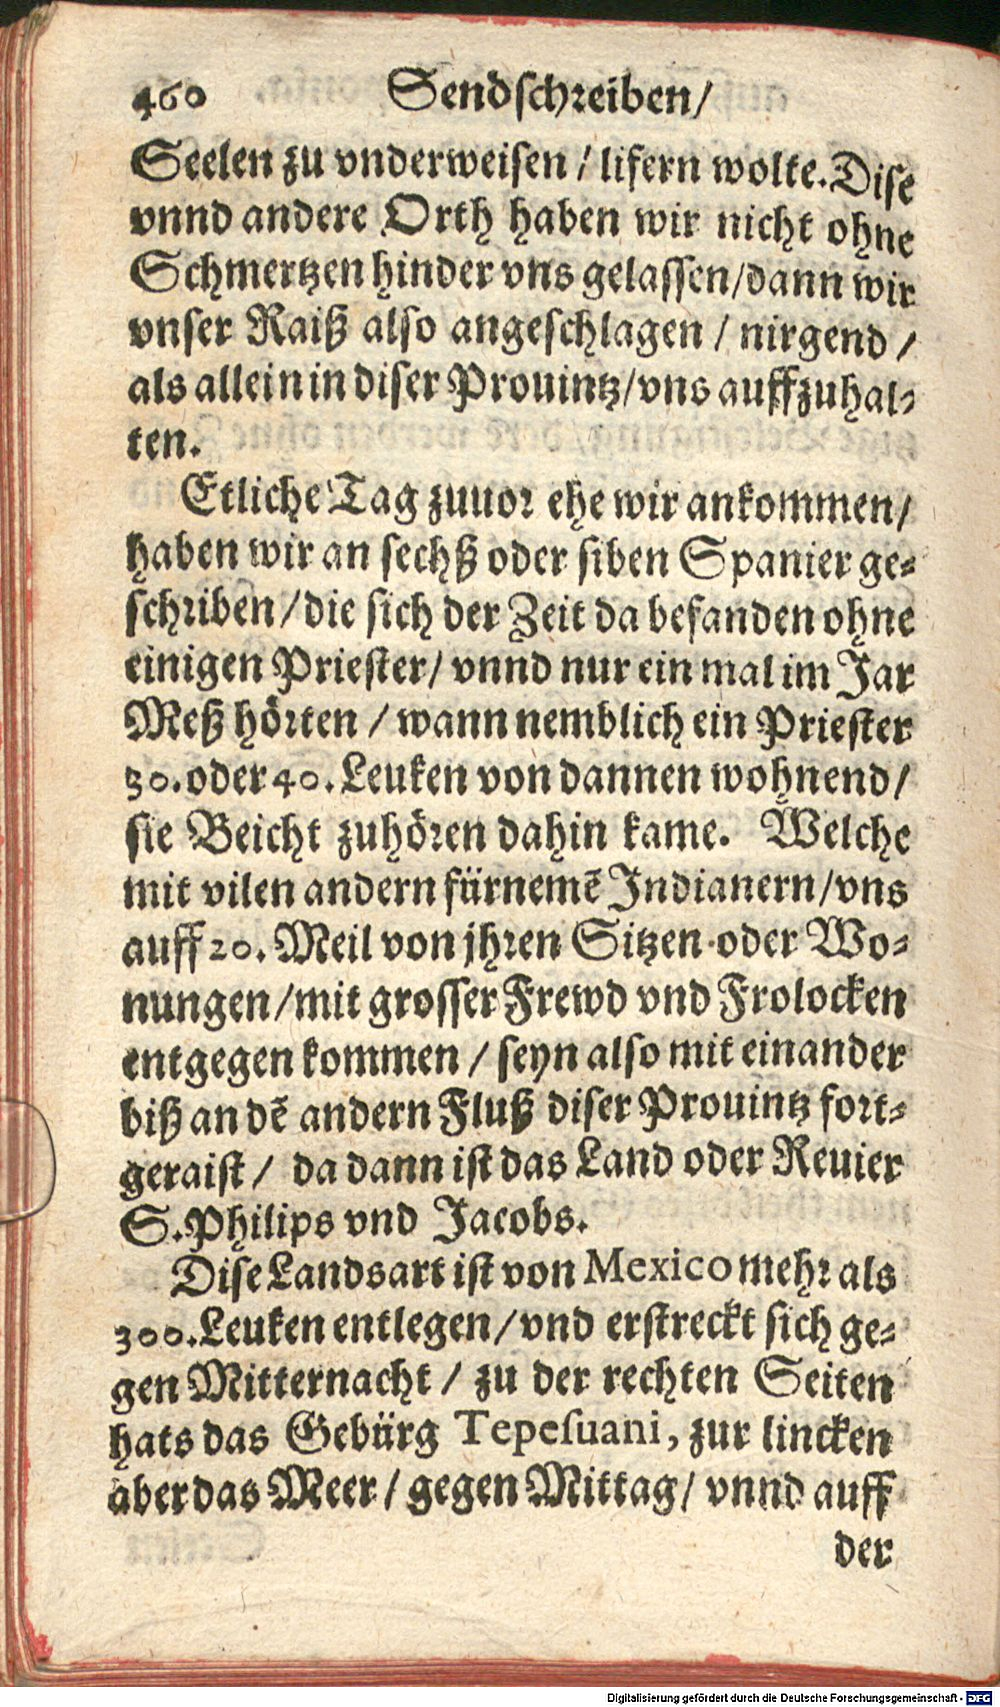 460 Sendschreiben/
Seelen zu vnderweisen / lifern wolte. Dise
vnnd andere Orth haben wir nicht ohne
Schmertzen hinder vns gelassen/dann wir
vnser Raiß also angeschlagen / nirgend /
als allein in diser Prouintz/vns auffzuhal-
ten.
Etliche Tag zuuor ehe wir ankommen/
haben wir an sechß oder siben Spanier ge-
schriben/die sich der Zeit da befanden ohne
einigen Priester/ vnnd nur ein mal im Jar
Meß hörten / wann nemblich ein Priester
30. oder 40. Leuken von dannen wohnend/
sie Beicht zuhören dahin kame. Welche
mit vilen andern fürnemẽ Indianern/vns
auff 20. Meil von jhren Sitzen oder Wo-
nungen/mit grosser Frewd vnd Frolocken
entgegen kommen / seyn also mit einander
biß an dẽ andern Fluß diser Prouintz fort-
geraist / da dann ist das Land oder Reuier
S. Philips vnd Jacobs.
Dise Landsart ist von Mexico mehr als
300. Leuken entlegen/vnd erstreckt sich ge-
gen Mitternacht / zu der rechten Seiten
hats das Gebürg Tepesuani, zur lincken
aber das Meer / gegen Mittag/ vnnd auff
der
Digitalisierung gefördert durch die Deutsche Forschungsgemeinschaft - DFG